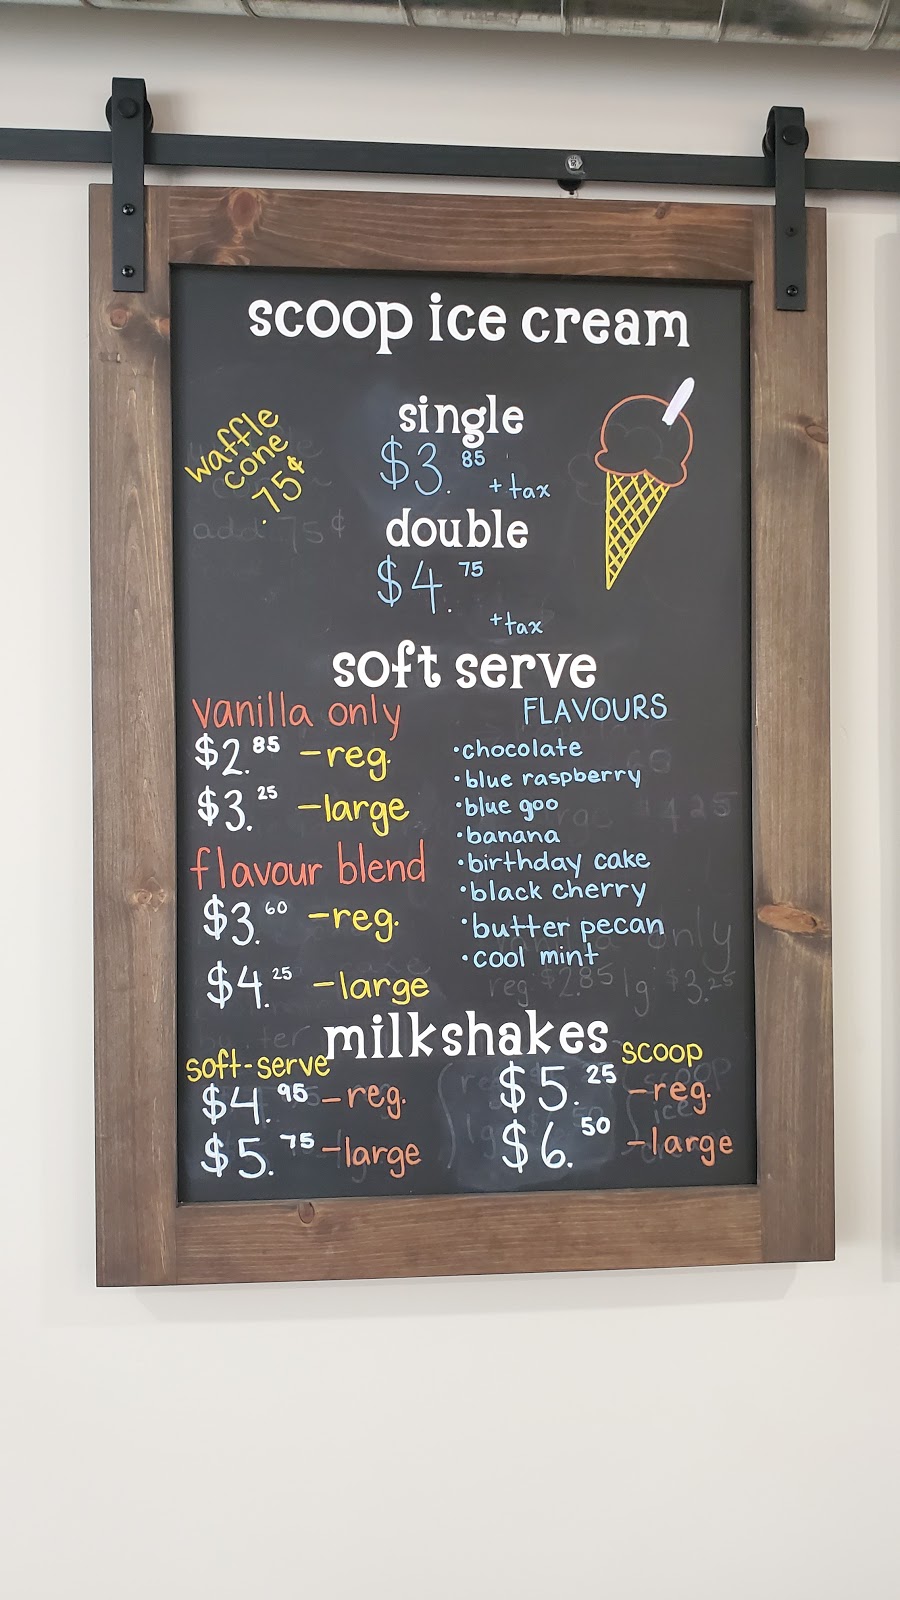 scoop ice cream
waffle
cone
.75¢
single
$3.85 + tax
add .75¢
double
$4.75
+tax
soft serve
vanilla only
$2.85 - reg.
$3.25 - large
flavour blend
$3.60 - reg.
$4.25 - large
FLAVOURS
• chocolate
• blue raspberry
• blue goo
• banana
• birthday cake
• black cherry
• butter pecan
• cool mint
vanilla only
reg $2.85 lg $3.25
milkshakes
soft-serve
$4.95 - reg.
$5.75 - large
scoop
$5.25 - reg.
$6.50 - large